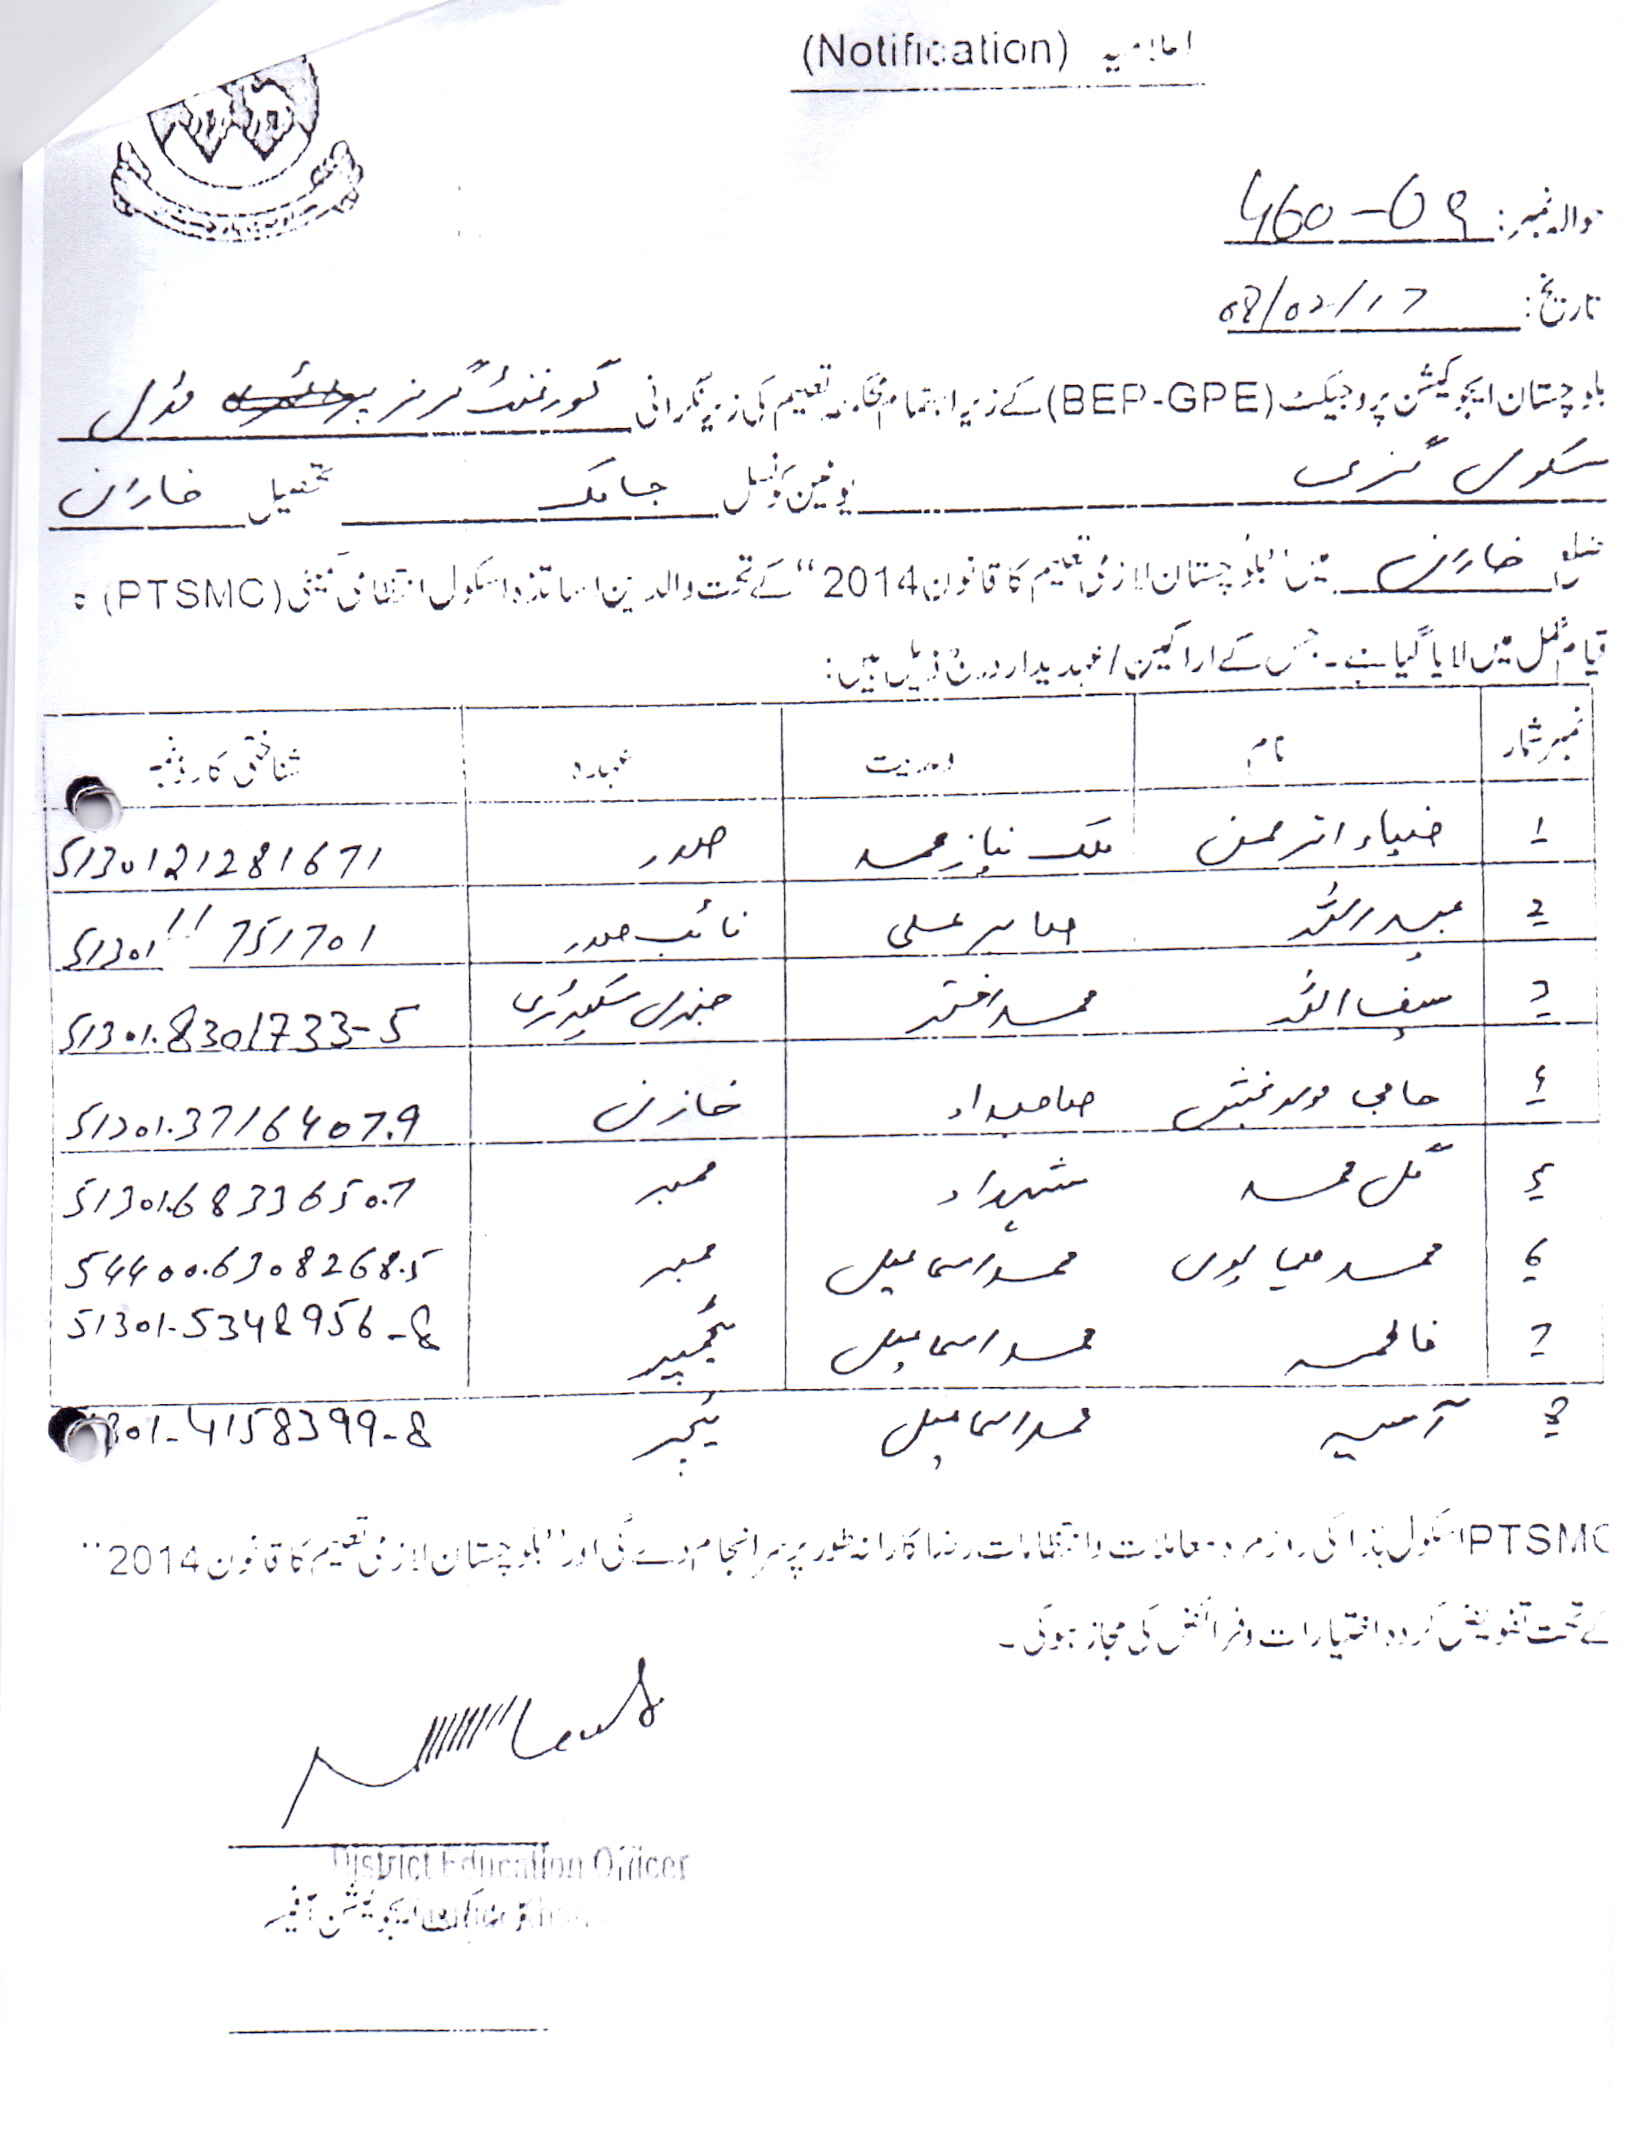 اعلامیہ (Notification)
حوالہ نمبر: 460-09
تاریخ: 08/02/17
بلوچستان ایجوکیشن پروجیکٹ (BEP-GPE) کے زیر اہتمام محکمہ تعلیم کی زیر نگرانی گورنمنٹ گرلز مڈل
سکول گزی یونین کونسل جامک تحصیل خاران
ضلع خاران میں "بلوچستان لازمی تعلیم کا قانون 2014" کے تحت والدین اساتذہ اسکول انتظامی کمیٹی (PTSMC) کا
قیام عمل میں لایا گیا ہے۔ جس کے اراکین/عہدیدار درج ذیل ہیں:
نمبر شمار نام ولدیت عہدہ شناختی کارڈ نمبر
1 ضیاء الرحمن ملک نیاز محمد صدر 5130121281671
2 عبید اللہ صابر علی نائب صدر 51301 11 751701
3 سیف اللہ محمد اختر جنرل سکیرٹری 51301.8301733-5
4 حاجی مولا بخش صاحبداد خازن 51301.3716407.9
5 گل محمد شہداد ممبر 51301.6833650.7
6 محمد ہمایوں محمد اسماعیل ممبر 54400.6308268.5
7 فاطمہ محمد اسماعیل ٹیچر 51301-5348956-8
8 آسیہ محمد اسماعیل ٹیچر 301-4158399-8
PTSMC اسکول ہذا کی روزمرہ معاملات و انتظامات رضا کارانہ طور پر سرانجام دے گی اور "بلوچستان لازمی تعلیم کا قانون 2014"
کے تحت تفویض کردہ اختیارات و فرائض کی مجاز ہوگی۔
District Education Officer
ایجوکیشن آفیسر